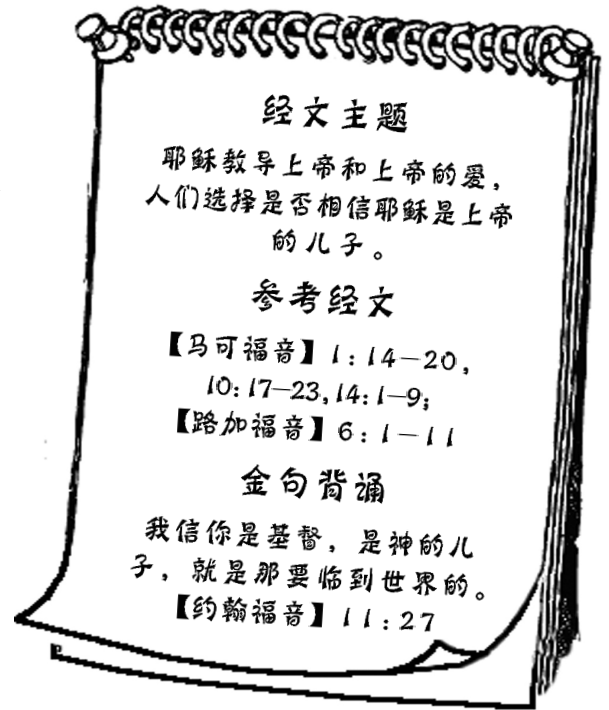 经文主题
耶稣教导上帝和上帝的爱，
人们选择是否相信耶稣是上帝
的儿子。
参考经文
【马可福音】1：14—20，
10：17—23，14：1—9；
【路加福音】6：1—11
金句背诵
我信你是基督，是神的儿
子，就是那要临到世界的。
【约翰福音】11：27